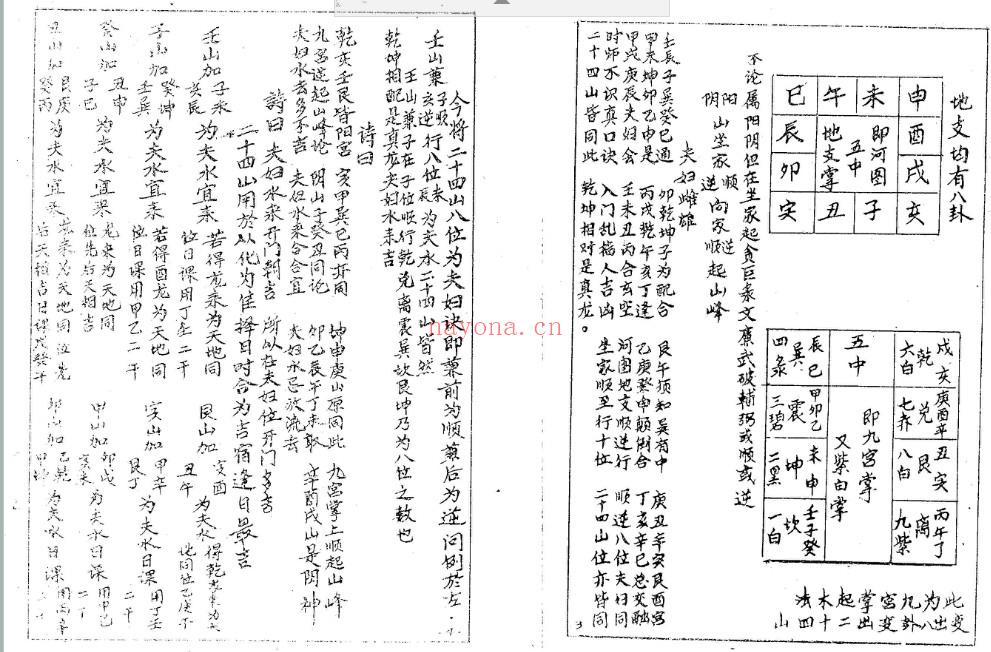 地支均有八卦
巳 午 未 申
辰 地支掌 五中 即河图 酉
卯 戌
寅 丑 子 亥
不论属阳阴但在坐家起贪巨禄文廉武破辅弼或顺或逆
阳山坐家顺
阴 逆向家顺起山峰
逆
夫妇雌雄
壬辰子巽癸巳通
甲未坤卯乙申是
甲戌庚辰夫妇会
时师不识真口诀
二十四山皆同此
卯乾坤子为配合
丙戌乾午亥丁逢
壬未丑丙合玄空
入门乱指人吉凶
乾坤相对是真龙。
艮午须知巽有中
乙庚癸申颠倒合
河图地支顺逆行
坐家顺至行十位
庚丑辛寅艮酉宫
丁亥辛巳总交融
顺逆八位夫妇同
二十四山位亦皆同
四录 巽 辰巳 五中 六白 乾 戌亥
三碧 震 甲卯乙 即九宫掌 七赤 兑 庚酉辛
二黑 坤 未申 又紫白掌 八白 艮 丑寅
一白 坎 壬子癸 九紫 离 丙午丁
此为九宫掌起木法
变出八卦变出二十四山
3
今将二十四山八位为夫妇诀即兼前为顺兼后为逆问例于左
壬山兼子顺行八位未为夫水二十四山皆然
亥逆 辰
壬山兼子在子位顺行乾兑离震巽坎艮坤乃为八位之数也
乾坤相配是真龙夫妇水来吉
诗曰
乾亥壬艮皆阳宫 亥甲巽巳丙亦同
坤申庚山原同此 九宫掌上顺起山峰
九宫逆起山峰论 阴山子癸丑同论
卯乙辰午丁未取 辛酉戌山是阴神
夫妇水去多不吉 夫妇水来合合宜
夫妇水忌放流去
诗曰 夫妇水来开门朝吉 所以在夫妇位开门多吉
二十四山用于以化为佳择日时合为吉宿逢日最吉
壬山加子未 为夫水宜来 若得龙来为天地同
亥辰 位日课用丁壬二干
子山加癸坤 为夫水宜来 若得酉龙为天地同
壬巽 位日课用甲乙二干
癸山加丑申 为夫水宜来
子巳 龙来为天地同
位先后天相吉
丑山加艮庚 为夫水宜来
癸丙
艮山加寅酉 为夫水 得乾龙来为天
丑午 地同位
寅山加甲辛 为夫水日课 用丁壬
艮丁 二干
甲山加卯戌 为夫水日课 用甲己
寅亥 二干
卯山加乙乾 为夫水日课 用丙辛
甲坤